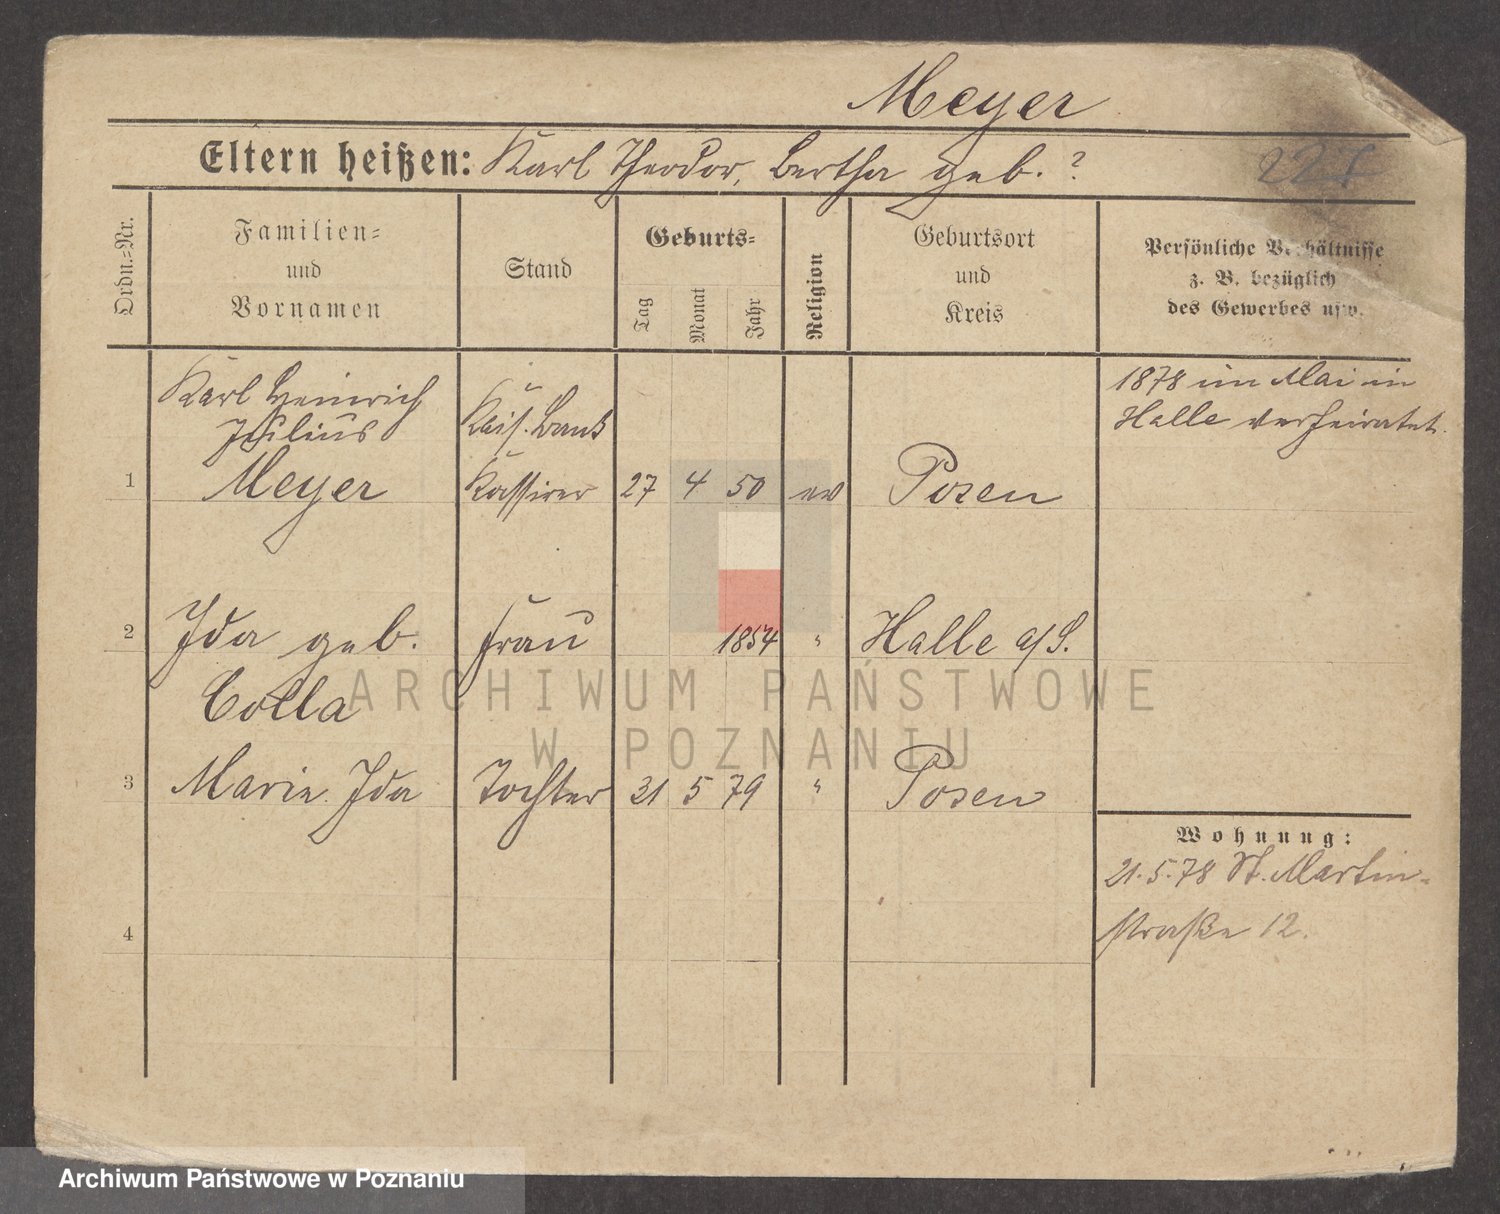 Meyer
Eltern heißen: Karl Theodor, Bertha geb. ?
Ordn.=Nr.
Familien=
und
Vornamen
Stand
Geburts=
Tag
Monat
Jahr
Religion
Geburtsort
und
Kreis
Persönliche Verhältnisse
z. B. bezüglich
des Gewerbes usw.
Karl Heinrich
Julius
1 Meyer
Kais. Bank
Kassirer 27 4 50 ev Posen
1878 im Mai in
Halle verheiratet.
2 Ida geb. Frau 1854 " Halle a/S.
Colla
3 Marie Ida Tochter 31 5 79 " Posen
4
Wohnung:
21.5.78 St. Martin-
straße 12.
ARCHIWUM PAŃSTWOWE
W POZNANIU
Archiwum Państwowe w Poznaniu